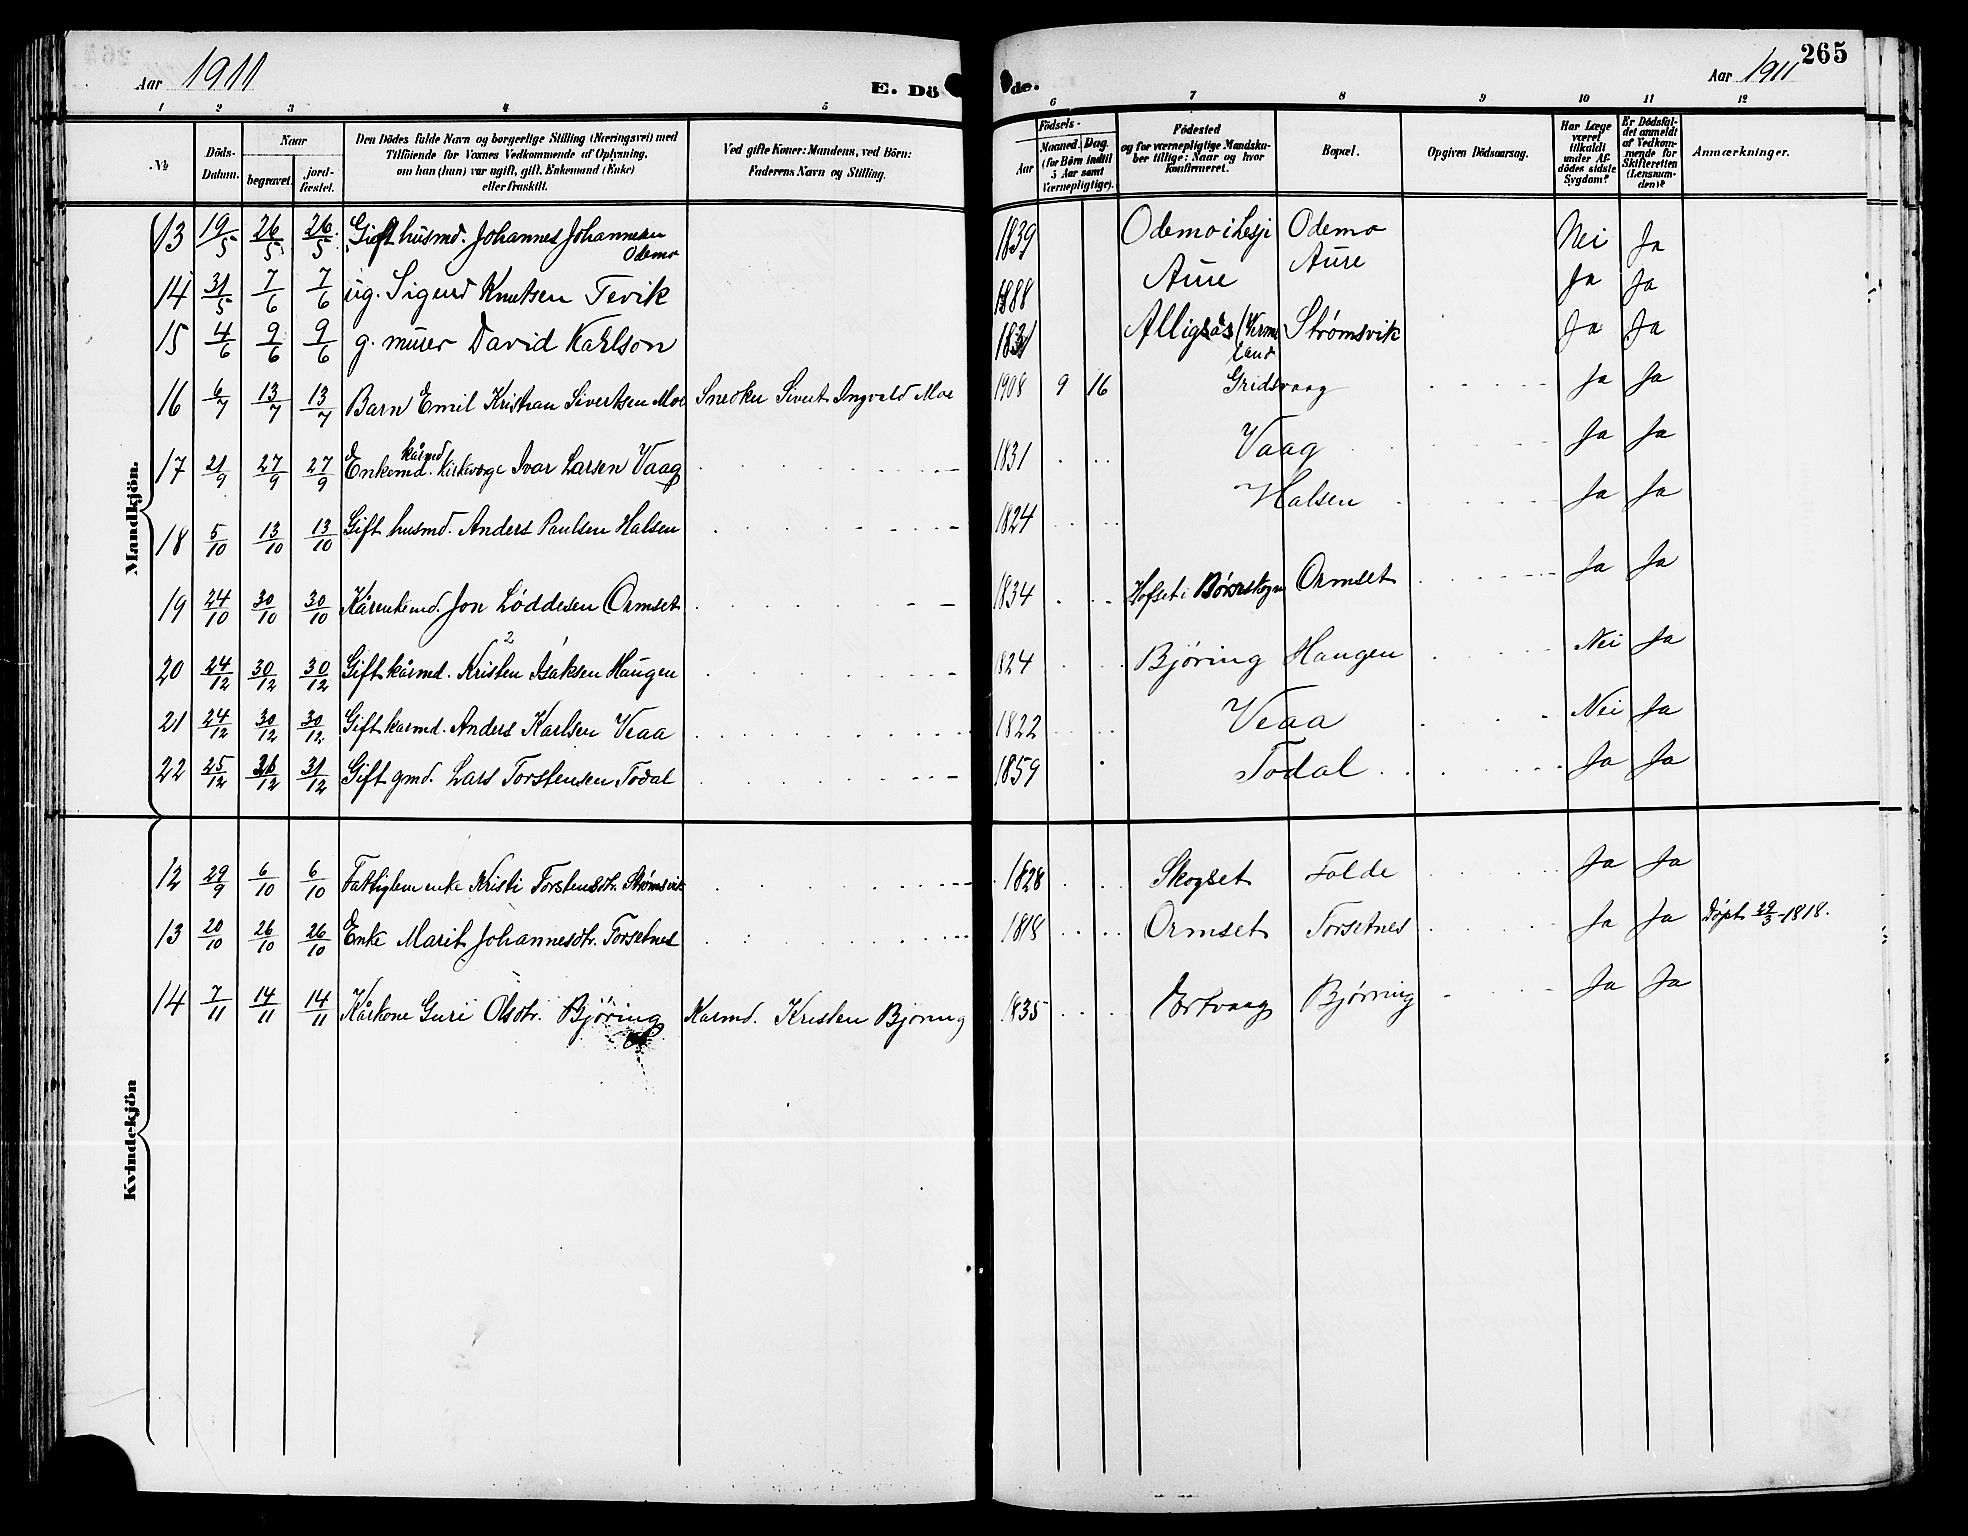 Aar 1911 E. Dö de. Aar 1911 265
1 2 3 4 5 6 7 8 9 10 11 12
№ Döds-Datum. Naar begravet. jordfæstet. Den Dödes fulde Navn og borgerlige Stilling (Næringsvei) med Tilföiende for Voxnes Vedkommende af Oplysning, om han (hun) var ugift, gift, Enkemand (Enke) eller fraskilt. Ved gifte Koner: Mandens, ved Börn: Faderens Navn og Stilling. Födsels- Aar Maaned. Dag. (for Börn indtil 5 Aar samt Værnepligtige). Födested og for værnepligtige Mandskaber tillige: Naar og hvor konfirmeret. Bopæl. Opgiven Dödsaarsag. Har Læge været tilkaldt under Afdödes sidste Sygdom? Er Dödsfaldet anmeldt af Vedkommende for Skifteretten (Lensmanden)? Anmærkninger.
Mandkjön.
13 19/5 26/5 26/5 Gift husmd. Johannes Johannesen Odemo 1839 Odemo i Lesje Odemo Nei Ja
14 31/5 7/6 7/6 ug. Sigurd Knutsen Tevik 1888 Aure Aure Ja Ja
15 4/6 9/6 9/6 g. murer David Karlson 1831 (Verm land Strømsvik Ja Ja
16 6/7 13/7 13/7 Barn Emil Kristian Sivertsen Moe Snedker Sivert Ingvald Moe 1908 9 16 Gridsvaag Ja Ja
17 21/9 27/9 27/9 Enkemd. kårmd kirkeværge Ivar Larsen Vaag 1831 Vaag Ja Ja
18 5/10 13/10 13/10 Gift husmd. Anders Paulsen Halsen 1824 Halsen Ja Ja
19 24/10 30/10 30/10 Kårenkemd. Jon Løddesen Ormset 1834 Hofset i Børseskogn Ormset Ja Ja
20 24/12 30/12 30/12 Gift kårmd. Kristen Isaksen Haugen 1824 Bjøring Haugen Nei Ja
21 24/12 30/12 30/12 Gift karmd. Anders Karlsen Veaa 1822 Veaa Nei Ja
22 25/12 31/12 31/12 Gift gmd. Lars Torstensen Todal 1859 Todal Ja Ja
Kvindekjön
12 29/9 6/10 6/10 Fattiglem enke Kristi Torstensdtr. Strømsvik 1828 Skogset Folde Ja Ja
13 20/10 26/10 26/10 Enke Marit Johannesdtr. Torsetnes 1818 Ormset Torsetnes Ja Ja Døpt 29/3-1818.
14 7/11 14/11 14/11 Kårkone Guri Olsdtr. Bjøring Karmd. Kristen Bjøring 1835 Ertvaag Bjørning Ja Ja